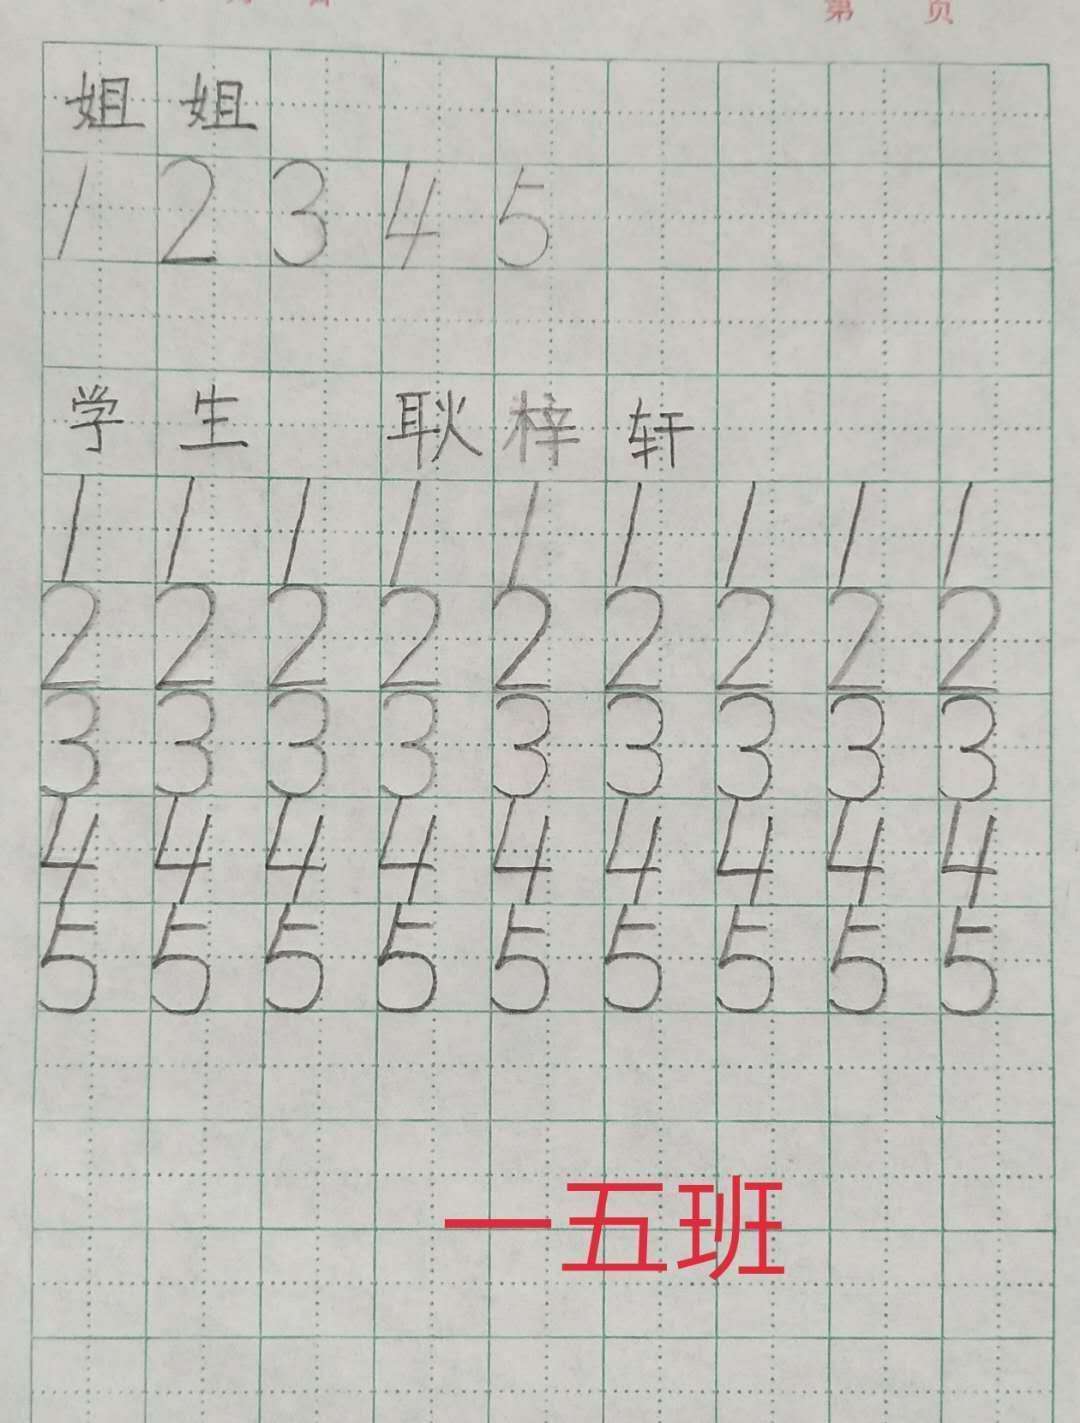 第 页
姐 姐
1 2 3 4 5
学 生 耿 梓 轩
1 1 1 1 1 1 1 1 1
2 2 2 2 2 2 2 2 2
3 3 3 3 3 3 3 3 3
4 4 4 4 4 4 4 4 4
5 5 5 5 5 5 5 5 5
一五班